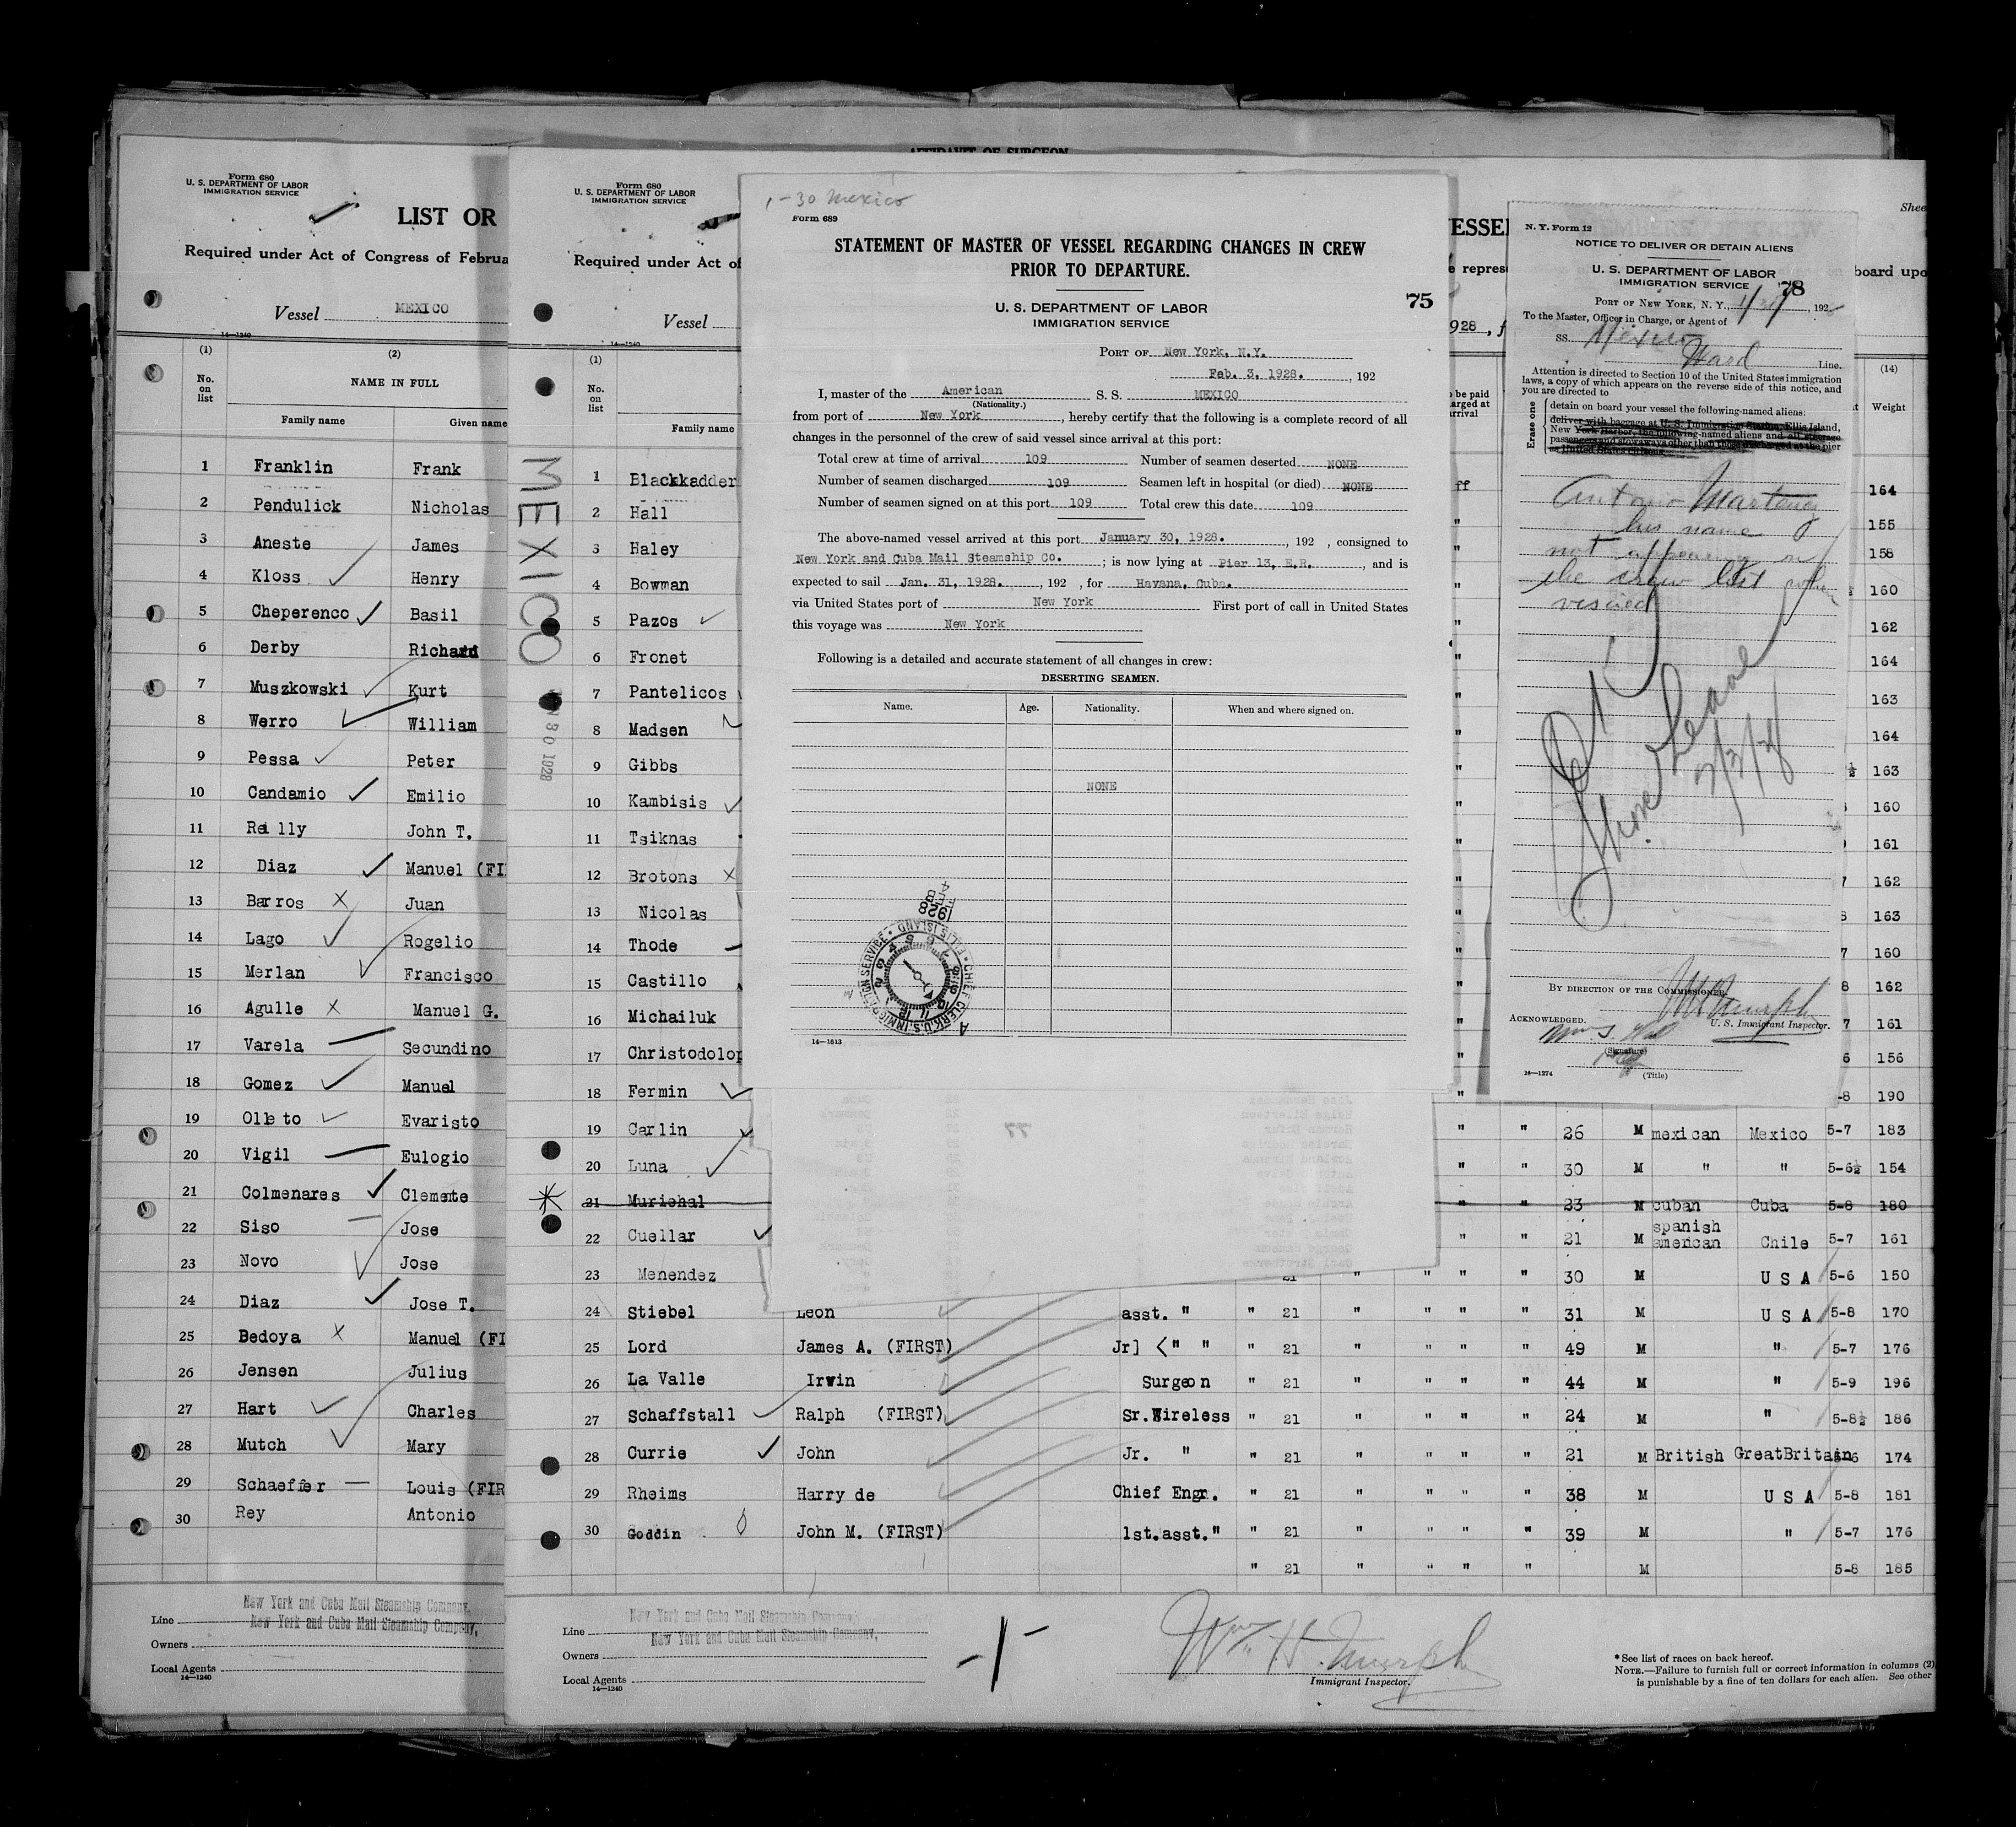 AFFIDAVIT OF SURGEON
Form 680
U. S. DEPARTMENT OF LABOR
IMMIGRATION SERVICE
LIST OR
Required under Act of Congress of Februa
Vessel MEXICO
14—1240
(1) (2)
No. on list
NAME IN FULL
Family name Given name
1 Franklin Frank
2 Pendulick Nicholas
3 Aneste James
4 Kloss Henry
5 Cheperenco Basil
6 Derby Richard
7 Muszkowski Kurt
8 Werro William
9 Pessa Peter
10 Candamio Emilio
11 Reilly John T.
12 Diaz Manuel (FI
13 Barros X Juan
14 Lago Rogelio
15 Merlan Francisco
16 Agulle X Manuel G.
17 Varela Secundino
18 Gomez Manuel
19 Olleto Evaristo
20 Vigil Eulogio
21 Colmenares Clemente
22 Siso Jose
23 Novo Jose
24 Diaz Jose T.
25 Bedoya X Manuel (FI
26 Jensen Julius
27 Hart Charles
28 Mutch Mary
29 Schaeffer Louis (FIR
30 Rey Antonio
New York and Cuba Mail Steamship Company,
Line New York and Cuba Mail Steamship Company,
Owners
Local Agents
14—1240
Form 680
U. S. DEPARTMENT OF LABOR
IMMIGRATION SERVICE
Required under Act of
Vessel
14—1240
(1)
No. on list
Family name
MEXICO
N 30 1928
1 Blackkadder
2 Hall
3 Haley
4 Bowman
5 Pazos
6 Fronet
7 Pantelicos
8 Madsen
9 Gibbs
10 Kambisis
11 Tsiknas
12 Brotons X
13 Nicolas
14 Thode
15 Castillo
16 Michailuk
17 Christodolop
18 Fermin
19 Carlin
20 Luna
21 Murichal
22 Cuellar
23 Menendez
24 Stiebel Leon asst. " " 21 " " " " 31 M U S A 5-8 170
25 Lord James A. (FIRST) Jr] " " " 21 " " " " 49 M " 5-7 176
26 La Valle Irwin Surgeon " 21 " " " " 44 M " 5-9 196
27 Schaffstall Ralph (FIRST) Sr.Wireless " 21 " " " " 24 M " 5-8½ 186
28 Currie John Jr. " " 21 " " " " 21 M British GreatBritain 5-6 174
29 Rheims Harry de Chief Engr. " 21 " " " " 38 M U S A 5-8 181
30 Goddin John M. (FIRST) 1st.asst." " 21 " " " " 39 M " 5-7 176
" 21 " " " " M 5-8 185
New York and Cuba Mail Steamship Company,
Line New York and Cuba Mail Steamship Company,
Owners
Local Agents
14—1240
Wm H. Murphy
Immigrant Inspector.
*See list of races on back hereof.
NOTE.—Failure to furnish full or correct information in columns (2)
is punishable by a fine of ten dollars for each alien. See other
1-30 Mexico
Form 689
STATEMENT OF MASTER OF VESSEL REGARDING CHANGES IN CREW
PRIOR TO DEPARTURE.
75
U. S. DEPARTMENT OF LABOR
IMMIGRATION SERVICE
PORT OF New York, N.Y.
Feb. 3, 1928. , 192
I, master of the American S. S. MEXICO
(Nationality.)
from port of New York, hereby certify that the following is a complete record of all
changes in the personnel of the crew of said vessel since arrival at this port:
Total crew at time of arrival 109 Number of seamen deserted NONE
Number of seamen discharged 109 Seamen left in hospital (or died) NONE
Number of seamen signed on at this port 109 Total crew this date 109
The above-named vessel arrived at this port January 30, 1928. , 192 , consigned to
New York and Cuba Mail Steamship Co. ; is now lying at Pier 13, E.R. , and is
expected to sail Jan. 31, 1928. , 192 , for Havana, Cuba.
via United States port of New York First port of call in United States
this voyage was New York
Following is a detailed and accurate statement of all changes in crew:
DESERTING SEAMEN.
Name. Age. Nationality. When and where signed on.
NONE
1928
CHIEF CLERK U.S. IMMIGRATION SERVICE • ELLIS ISLAND •
14—1613
77
ESSEL
Shee
e repres
board upo
928, f
be paid
arged at
rrival
(14)
Weight
ff 164
155
158
160
162
164
163
164
163
160
161
162
163
160
162
161
156
190
" " 26 M mexican Mexico 5-7 183
" " 30 M " " 5-6½ 154
" " 23 M cuban Cuba 5-8 180
" " 21 M spanish american Chile 5-7 161
21 " " " " 30 M U S A 5-6 150
N. Y. Form 12
NOTICE TO DELIVER OR DETAIN ALIENS
U. S. DEPARTMENT OF LABOR
IMMIGRATION SERVICE 78
PORT OF NEW YORK, N. Y., 1/30, 192
To the Master, Officer in Charge, or Agent of
SS. Mexico
Ward Line.
Attention is directed to Section 10 of the United States immigration
laws, a copy of which appears on the reverse side of this notice, and
you are directed to
Erase one
detain on board your vessel the following-named aliens:
deliver with baggage at U. S. Immigration Station, Ellis Island,
New York Harbor, the following-named aliens and all steerage
passengers and stowaways other than those discharged at the pier
as United States citizens.
Antonio Martenez
his name
not appearing on
the crew list when
visited
OK
Shore Leave
BY DIRECTION OF THE COMMISSIONER.
U. S. Immigrant Inspector.
ACKNOWLEDGED.
(Signature)
14—1274
(Title)